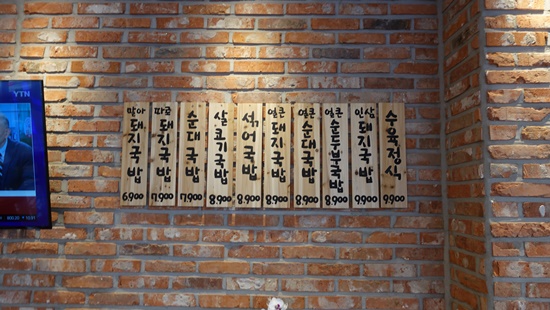 YTN
말아
돼지국밥
6.900
따로
돼지국밥
7.900
순대국밥
7.900
살코기국밥
8.900
섞어국밥
8.900
얼큰
돼지국밥
8.900
얼큰
순대국밥
8.900
얼큰
순두부국밥
8.900
인삼
돼지국밥
9.900
수육정식
9.900